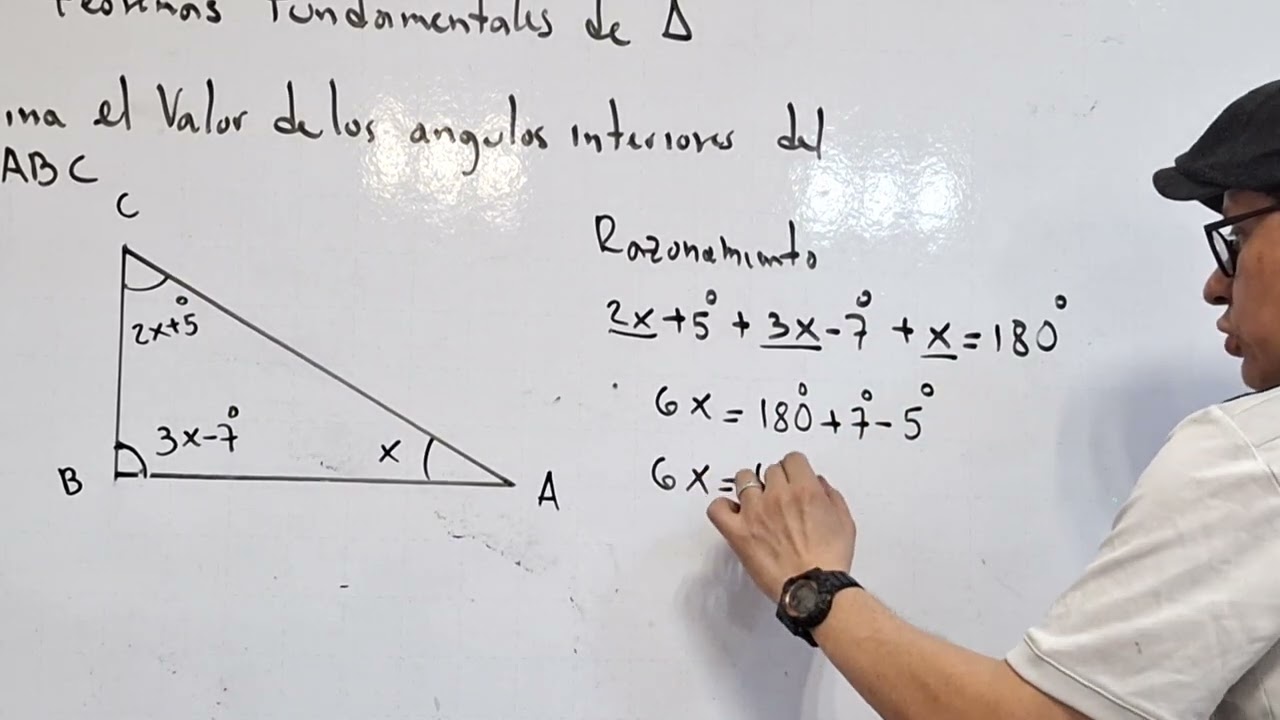 fundamentales de Δ
el Valor de los angulos interiores del
ABC
C
2x+5°
3x-7°
x
B
A
Razonamiento
2x+5°+3x-7°+x=180°
6x=180°+7°-5°
6x=